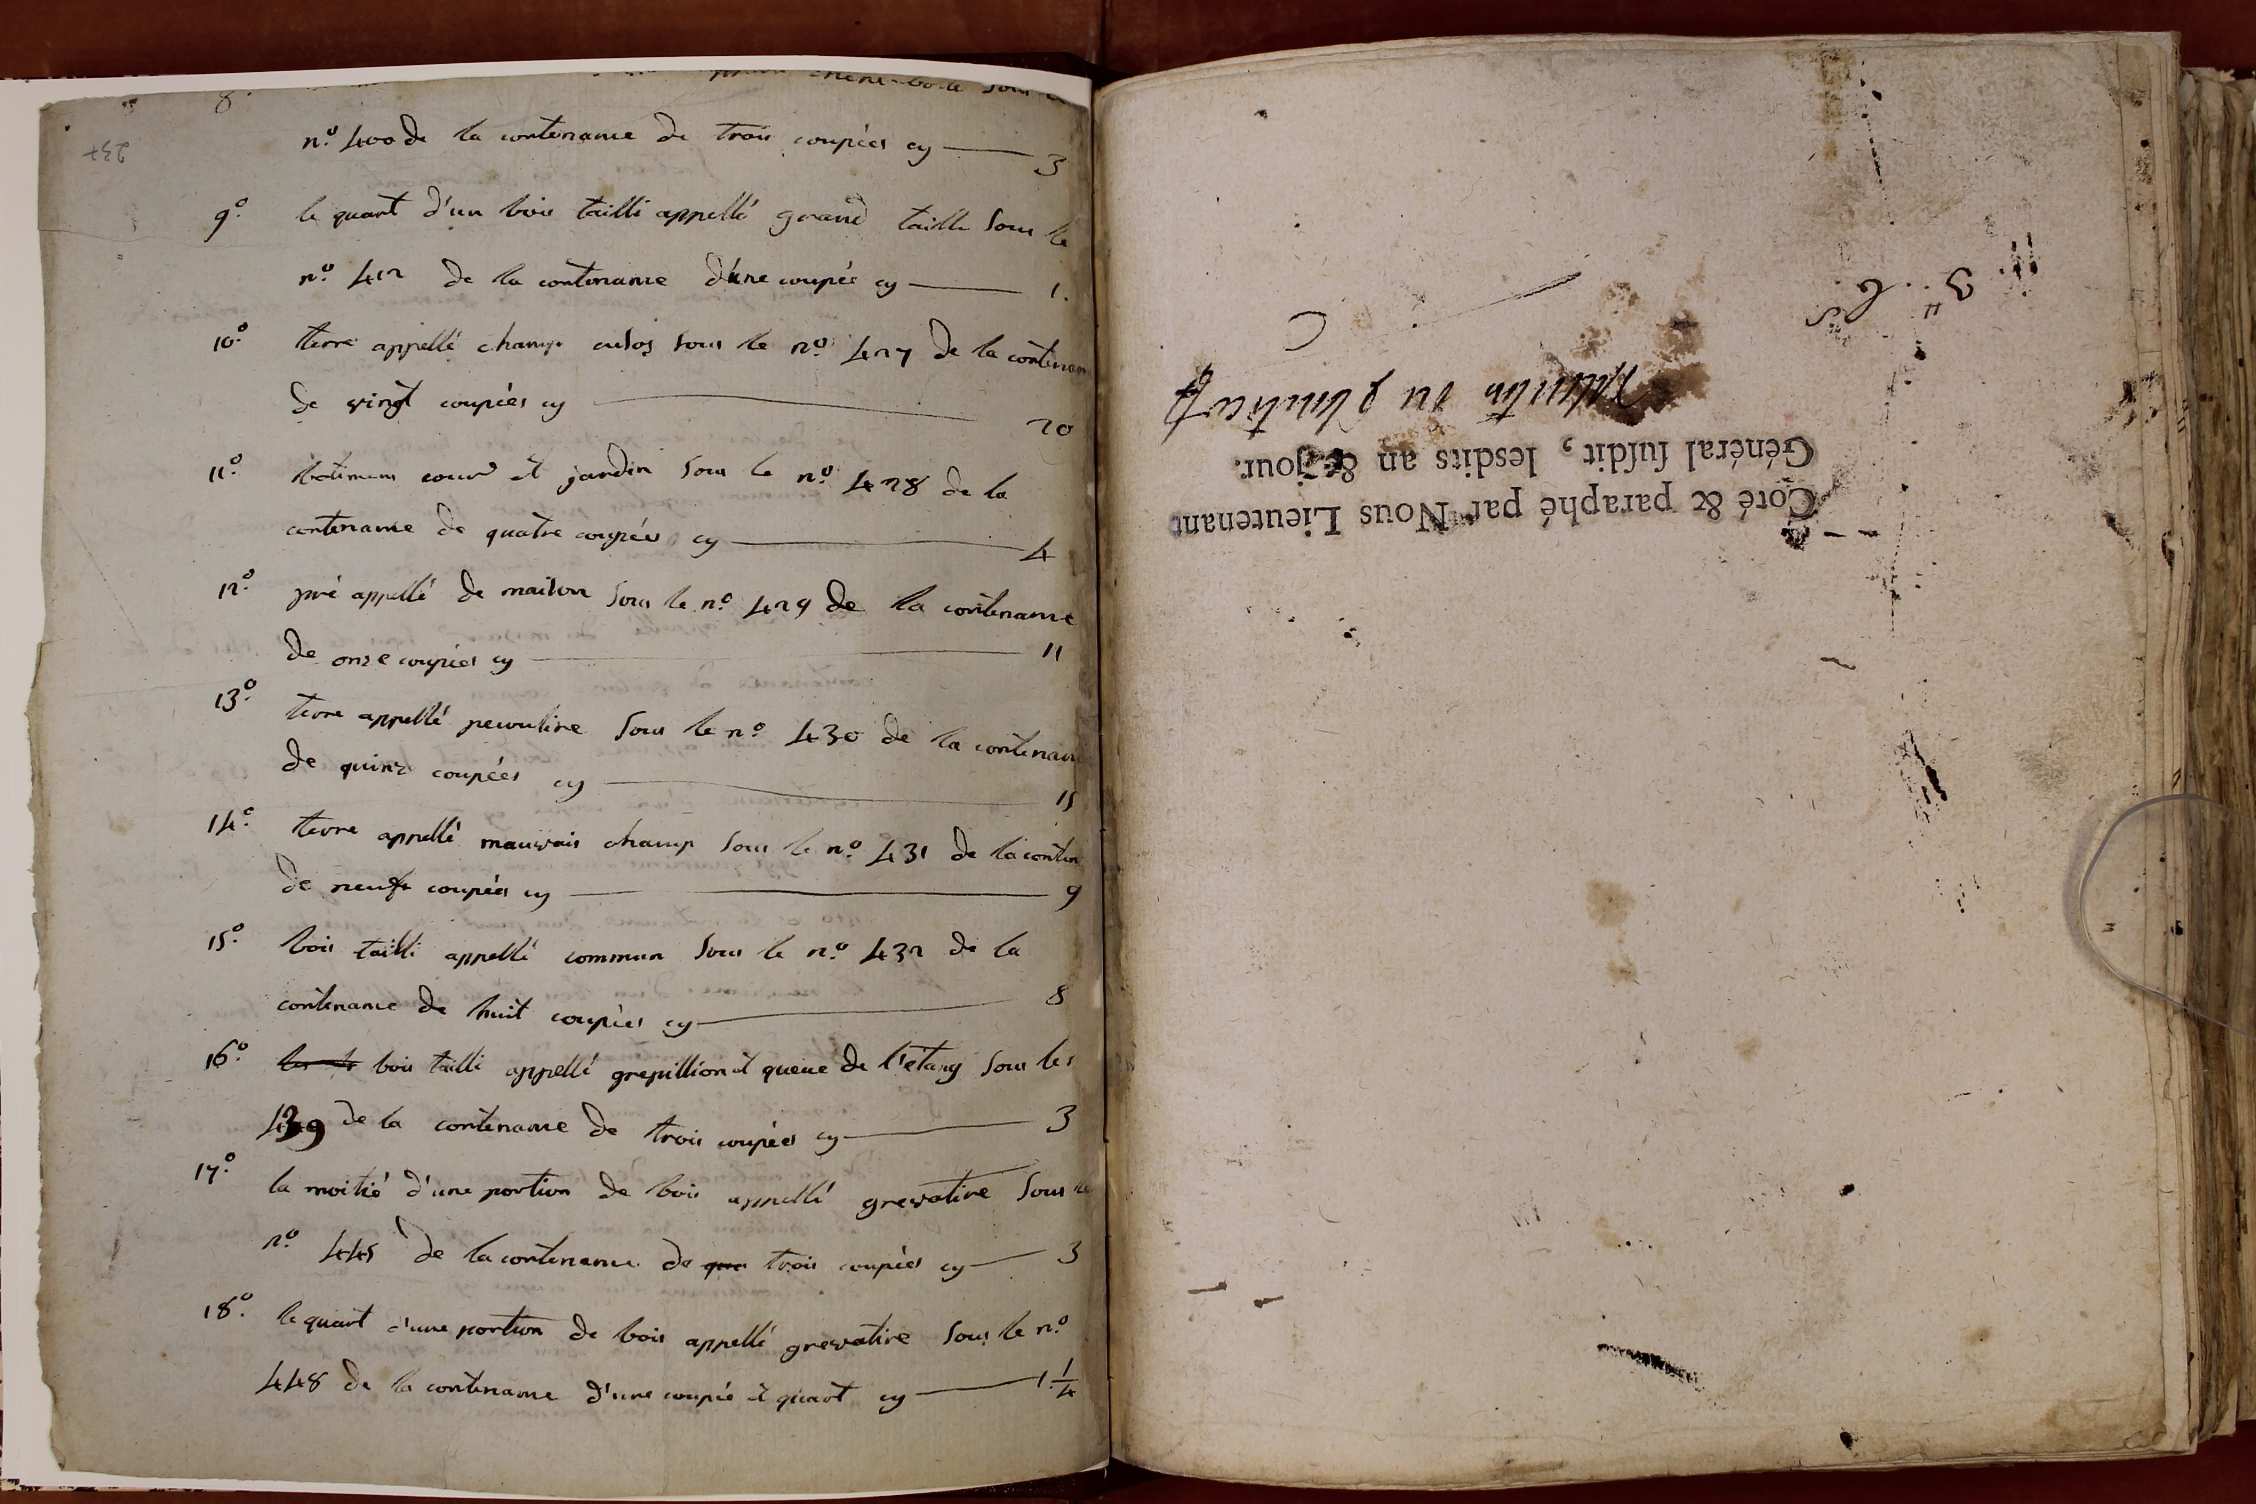 8°
n.° 400 de la contenance de trois coupées cy 3
9.° le quart d'un bois tailli appellé grand taille sous le
n.° 412 de la contenance d'une coupée cy 1.
10.° terre appellé champ sous le n.° 427 de la contenan
de vingt coupées cy 20
11.° batimens cour et jardin sous le n.° 428 de la
contenance de quatre coupées cy 4
12.° pré appellé de maison sous le n.° 429 de la contenance
de onze coupées cy 11
13.° terre appellé pecouline sous le n.° 430 de la contenan
de quinz coupées cy 15
14.° terre appellé mauvais champ sous le n.° 431 de la conten
de neuf coupées cy 9
15.° bois tailli appellé commun sous le n.° 432 de la
contenance de huit coupées cy 8
16.° bois tailli appellé grepillion et queue de l'etang sous les
439 de la contenance de trois coupées cy 3
17.° la moitié d'une portion de bois appellé grevatine sous le
n.° 445 de la contenance de trois coupées cy 3
18.° le quart d'une portion de bois appellé grevatine sous le n.°
448 de la contenance d'une coupée et quart cy 1. 1/4
Coté & paraphé par Nous Lieutenant
Général susdit, lesdits an & jour.